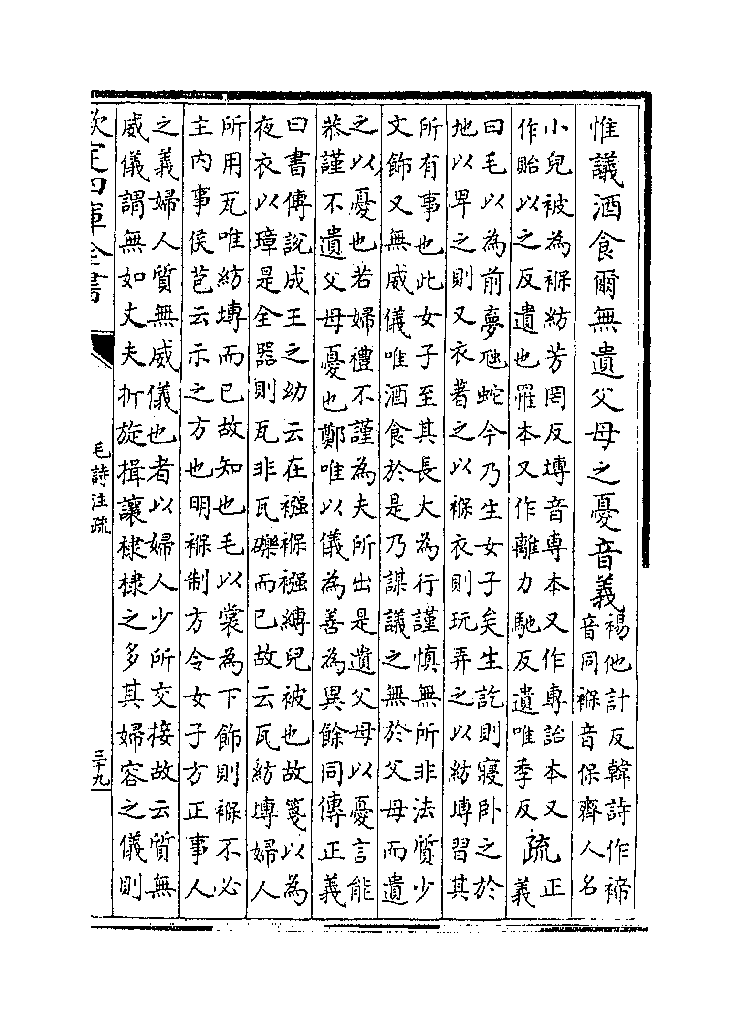 惟議酒食爾無遺父母之憂音義褐他計反韓詩作褅
音同褓音保齊人名
小兒被為褓紡芳罔反塼音專本又作專詒本又
作貽以之反遺也罹本又作離力馳反遺唯季反疏正
義
曰毛以為前夢虺蛇今乃生女子矣生訖則寢卧之於
地以卑之則又衣著之以褓衣則玩弄之以紡塼習其
所有事也此女子至其長大為行謹慎無所非法質少
文飾又無威儀唯酒食於是乃謀議之無於父母而遺
之以憂也若婦禮不謹為夫所出是遺父母以憂言能
恭謹不遺父母憂也鄭唯以儀為善為異餘同傳正義
曰書傳說成王之幼云在襁褓襁縛兒被也故箋以為
夜衣以璋是全器則瓦非瓦礫而已故云瓦紡塼婦人
所用瓦唯紡塼而已故知也毛以裳為下飾則褓不必
主內事侯苞云示之方也明褓制方令女子方正事人
之義婦人質無威儀也者以婦人少所交接故云質無
威儀謂無如丈夫折旋揖讓棣棣之多其婦容之儀則
欽定四庫全書
毛詩注疏
三十九